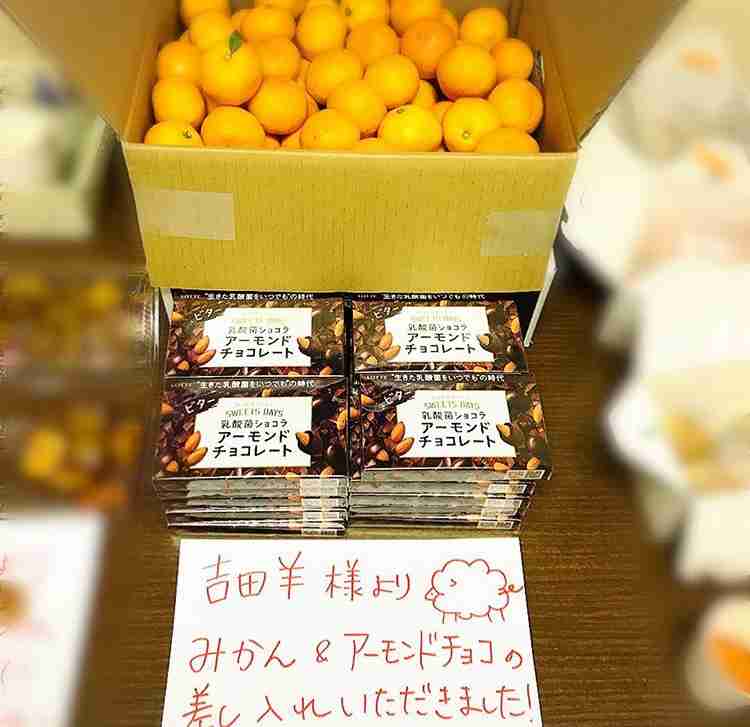 LOTTE "生きた乳酸菌をいつでも"の時代
ビター
SWEETS DAYS
乳酸菌ショコラ
アーモンド
チョコレート
LOTTE "生きた乳酸菌をいつでも"の時代
ビター
SWEETS DAYS
乳酸菌ショコラ
アーモンド
チョコレート
LOTTE "生きた乳酸菌をいつでも"の時代
ビター
SWEETS DAYS
乳酸菌ショコラ
アーモンド
チョコレート
LOTTE "生きた乳酸菌をいつでも"の時代
ビター
SWEETS DAYS
乳酸菌ショコラ
アーモンド
チョコレート
吉田羊様より
みかん&アーモンドチョコの
差し入れいただきました!